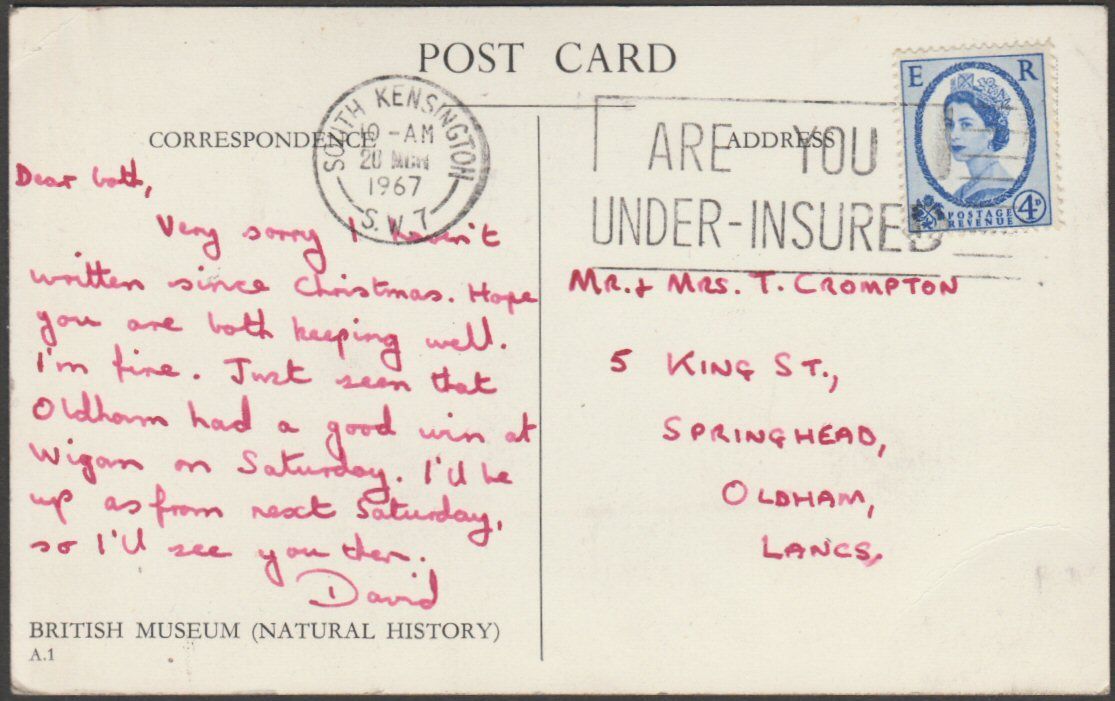 POST CARD
CORRESPONDENCE
ADDRESS
SOUTH KENSINGTON
10-AM
20 MCH
1967
S.W.7
ARE YOU
UNDER-INSURED
E R
POSTAGE
REVENUE
4D
Dear both,
Very sorry I haven't
written since Christmas. Hope
you are both keeping well.
I'm fine. Just seen that
Oldham had a good win at
Wigan on Saturday. I'll be
up as from next Saturday,
so I'll see you then.
David
BRITISH MUSEUM (NATURAL HISTORY)
A.1
MR. & MRS. T. CROMPTON
5 KING ST.,
SPRINGHEAD,
OLDHAM,
LANCS.